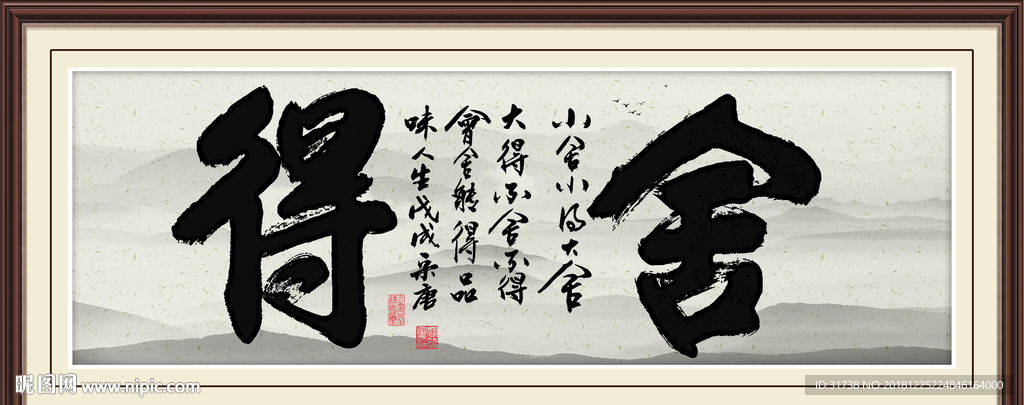 舍
得
小舍小得大舍
大得不舍不得
會舍能得品
味人生戊戌宗唐
昵图网 www.nipic.com
ID:31738 NO:20181225224846164000